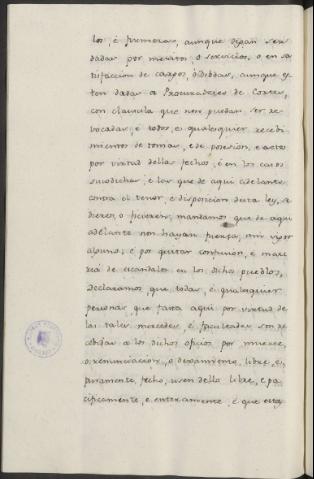 los, é primeras, aunque digan ser
dadas por meritos o servicios, o en sa
tisfaccion de cargos, ó debdas, aunque es
ten dadas a Procuradores de Cortes,
con clausula que non puedan ser re
vocadas; é todos, é qualesquier recebi
mientos de tomar, e de posesion, e actos
por virtud dellas fechos; é en los casos
susodichos, é los que de aqui adelante
contra el tenor, e disposicion desta ley, se
dieren, o ficieren; mandamos que de aqui
adelante non hayan fuerza, nin vigor
alguno; é por quitar confusion, é mate
ria de escandalos en los dichos pueblos,
declaramos, que todas, é qualesquier
personas que fasta aqui por virtud de
las tales mercedes, é facultades son re
cebidas a los dichos oficios por muerte,
o renunciacion, o dexamiento, libre, é
puramente, fecho, usen dello libre, e pa
cificamente, e enteramente, é que estas